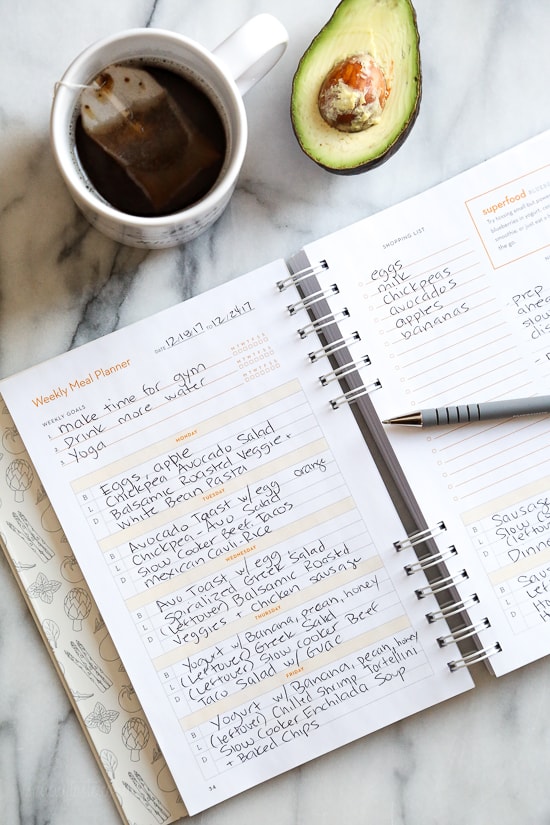 DATE 12/18/17 TO 12/24/17
Weekly Meal Planner
WEEKLY GOALS
M T W T F S S
1. make time for gym
M T W T F S S
2. Drink more water
M T W T F S S
3. Yoga
MONDAY
B Eggs, apple
L Chickpea Avocado Salad
D Balsamic Roasted Veggie +
White Bean Pasta
TUESDAY
B Avocado Toast w/ egg orange
L Chickpea-Avo Salad
D Slow Cooker Beef Tacos
mexican Cauli Rice
WEDNESDAY
B Avo Toast w/ egg
L Spiralized Greek Salad
D (Leftover) Balsamic Roastd
Veggies + chicken sausage
THURSDAY
B Yogurt w/ Banana, pecan, honey
L (Leftover) Greek Salad
D (Leftover) Slow Cooker Beef
Taco Salad w/ Guac
FRIDAY
B Yogurt w/ Banana, pecan, honey
L (leftover) Chilled Shrimp Tortellini
D Slow Cooker Enchilada Soup
+ Baked Chips
54
SHOPPING LIST
eggs
milk
chickpeas
avocados
apples
bananas
superfood
Try tossing
blueberries in yogurt,
smoothie, or just eat
the go.
prep
slow
Sausage
(Left
Slow Co
Dinner
Sausa
Left